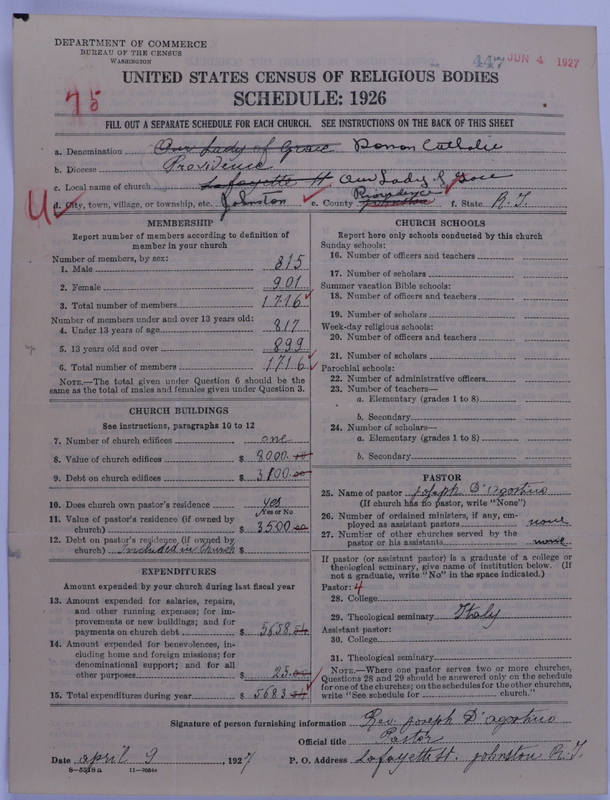 DEPARTMENT OF COMMERCE
BUREAU OF THE CENSUS
WASHINGTON
447 JUN 4 1927
UNITED STATES CENSUS OF RELIGIOUS BODIES
75
SCHEDULE: 1926
FILL OUT A SEPARATE SCHEDULE FOR EACH CHURCH. SEE INSTRUCTIONS ON THE BACK OF THIS SHEET
a. Denomination Our Lady of Grace Roman Catholic
b. Diocese Providence
c. Local name of church Lafayette St Our Lady of Grace
U d. City, town, village, or township, etc. Johnston e. County Johnston Providence f. State R.I.
MEMBERSHIP
Report number of members according to definition of
member in your church
Number of members, by sex:
1. Male 815
2. Female 901
3. Total number of members 1716
Number of members under and over 13 years old:
4. Under 13 years of age 817
5. 13 years old and over 899
6. Total number of members 1716
NOTE.—The total given under Question 6 should be the
same as the total of males and females given under Question 3.
CHURCH BUILDINGS
See instructions, paragraphs 10 to 12
7. Number of church edifices one
8. Value of church edifices $ 8000.00
9. Debt on church edifices $ 3100.00
10. Does church own pastor's residence yes
Yes or No
11. Value of pastor's residence (if owned by
church) $ 3500.00
12. Debt on pastor's residence (if owned by
church) Included in Church $
EXPENDITURES
Amount expended by your church during last fiscal year
13. Amount expended for salaries, repairs,
and other running expenses; for im-
provements or new buildings; and for
payments on church debt $ 5658.54
14. Amount expended for benevolences, in-
cluding home and foreign missions; for
denominational support; and for all
other purposes $ 25.00
15. Total expenditures during year $ 5683.54
CHURCH SCHOOLS
Report here only schools conducted by this church
Sunday schools:
16. Number of officers and teachers
17. Number of scholars
Summer vacation Bible schools:
18. Number of officers and teachers
19. Number of scholars
Week-day religious schools:
20. Number of officers and teachers
21. Number of scholars
Parochial schools:
22. Number of administrative officers
23. Number of teachers—
a. Elementary (grades 1 to 8)
b. Secondary
24. Number of scholars—
a. Elementary (grades 1 to 8)
b. Secondary
PASTOR
25. Name of pastor Joseph D'Agostino
(If church has no pastor, write "None")
26. Number of ordained ministers, if any, em-
ployed as assistant pastors none
27. Number of other churches served by the
pastor or his assistants none
If pastor (or assistant pastor) is a graduate of a college or
theological seminary, give name of institution below. (If
not a graduate, write "No" in the space indicated.)
Pastor: 4
28. College
29. Theological seminary Italy
Assistant pastor:
30. College
31. Theological seminary
NOTE.—Where one pastor serves two or more churches,
Questions 28 and 29 should be answered only on the schedule
for one of the churches; on the schedules for the other churches,
write "See schedule for church."
Signature of person furnishing information Rev. Joseph D'agostino
Official title Pastor
Date april 9, 1927 P. O. Address Lafayette St. Johnston R.I.